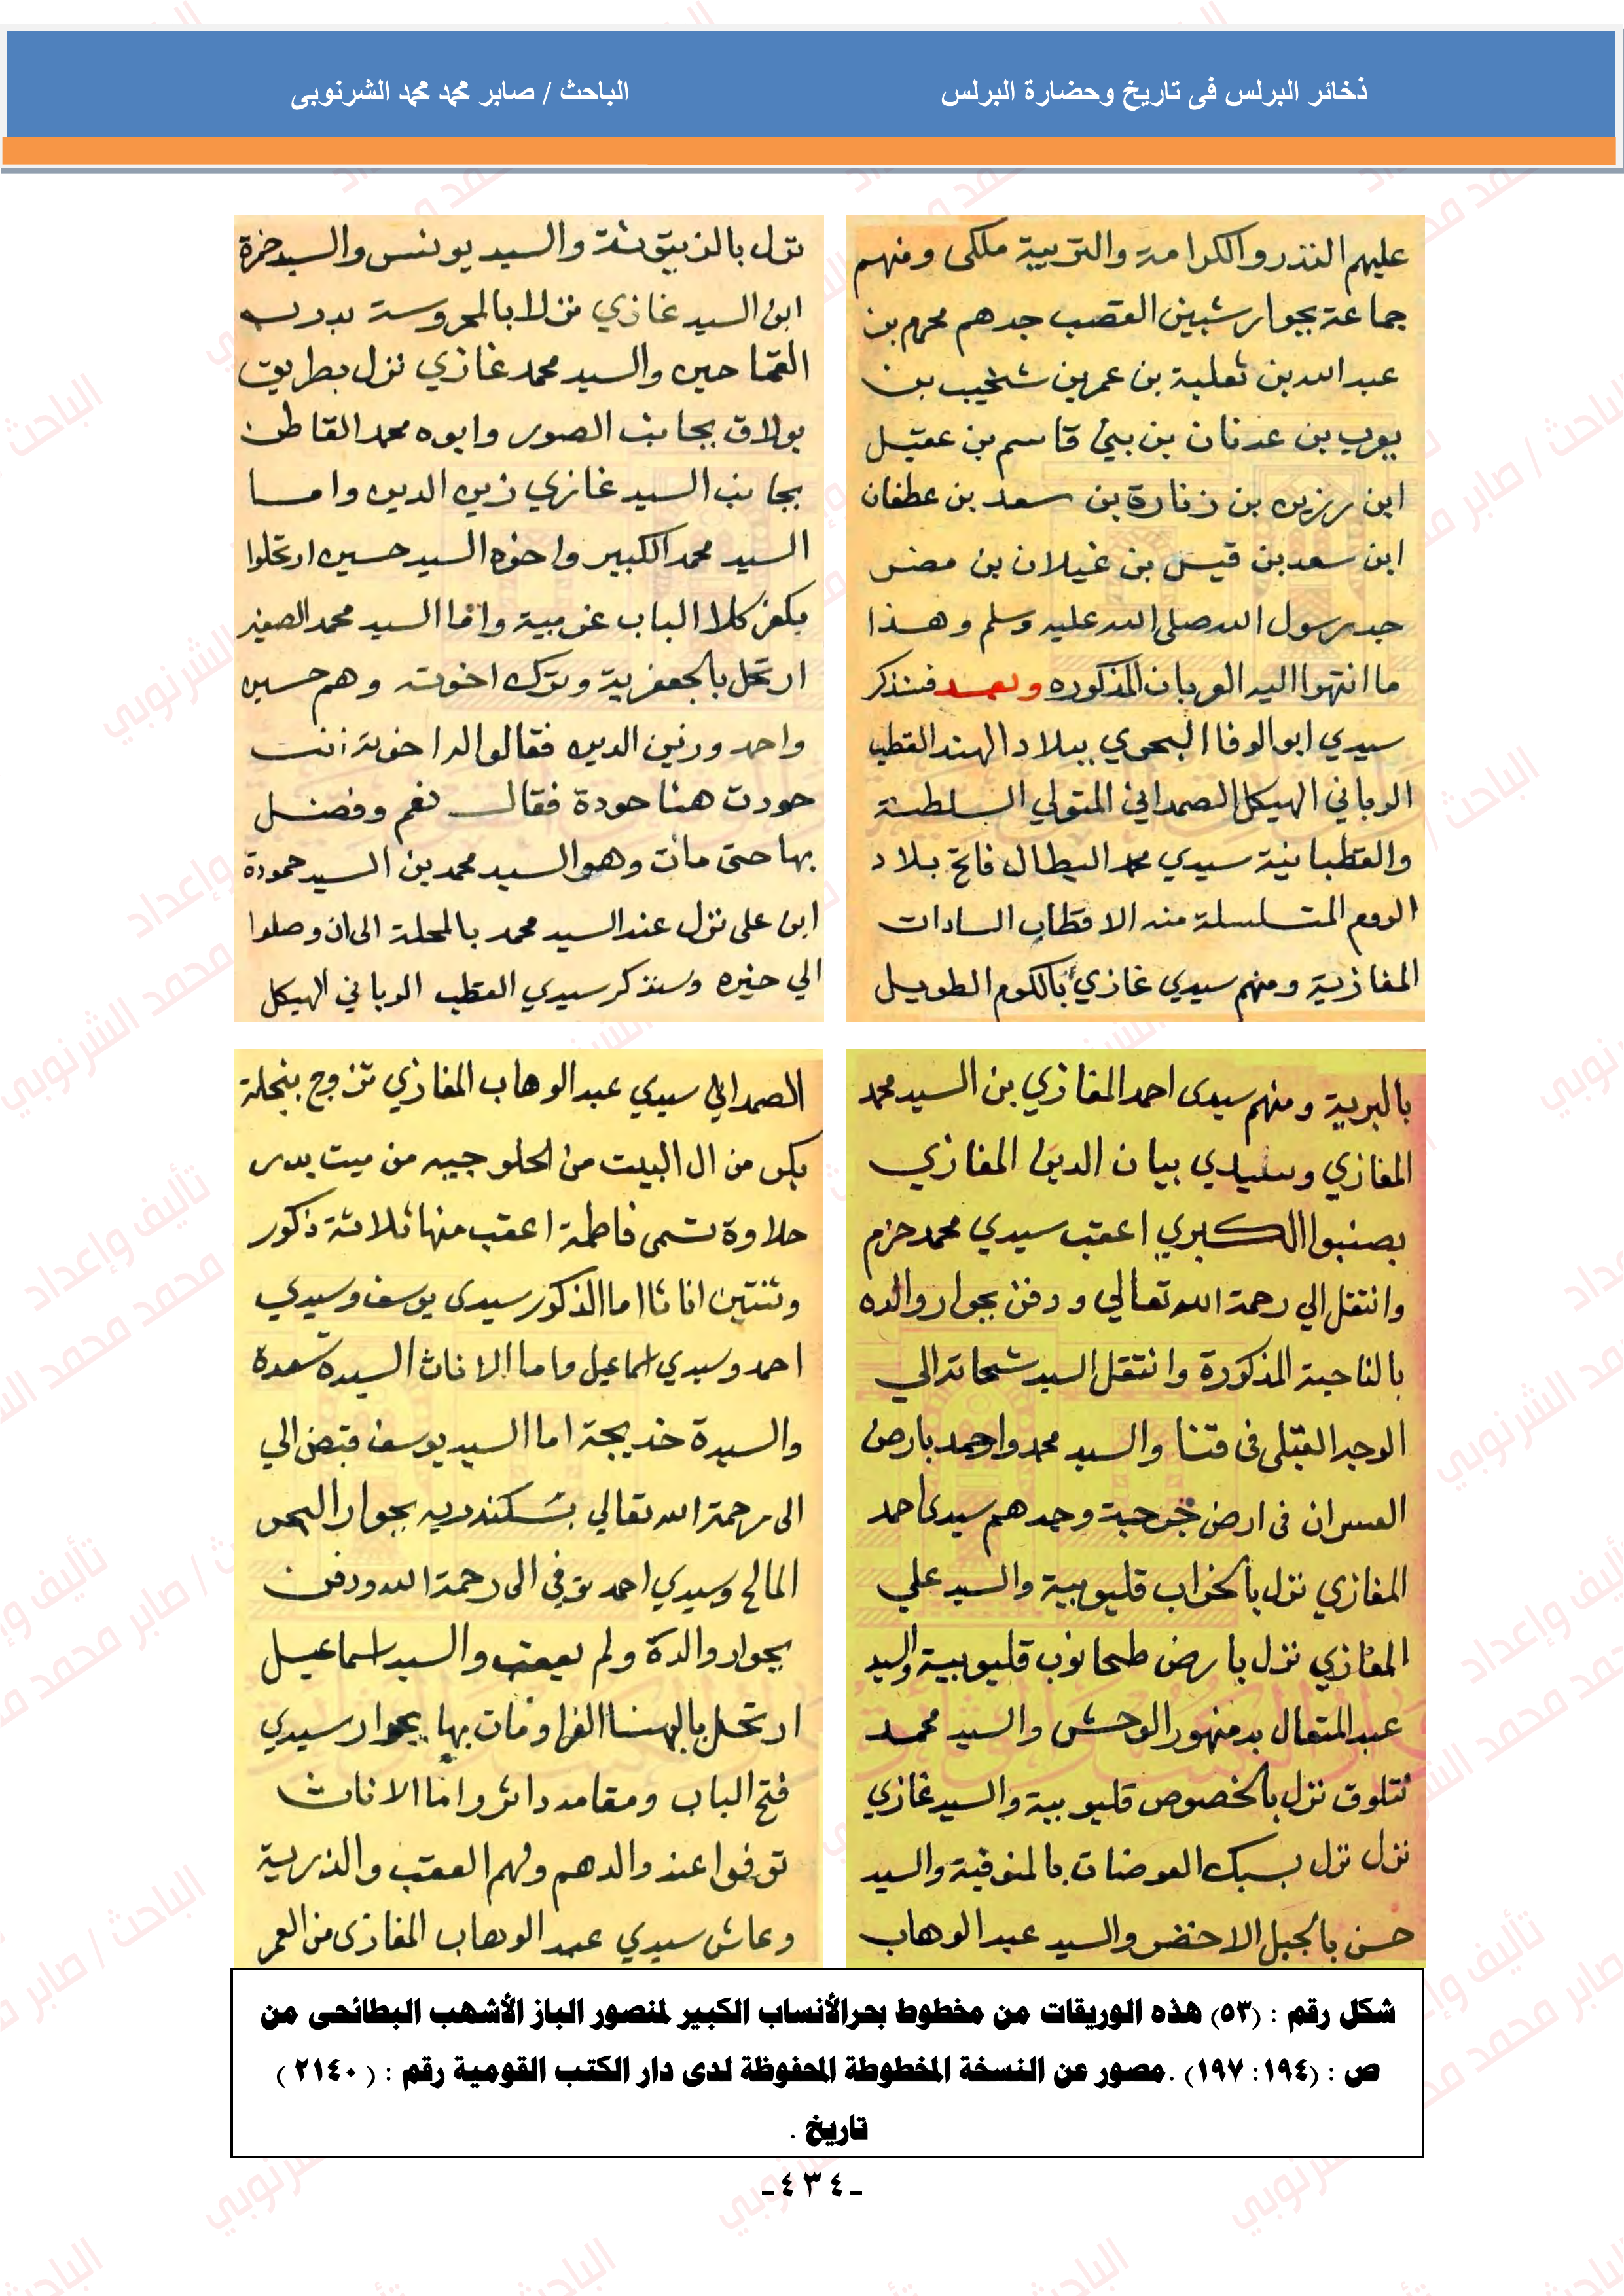 ذخائر البرلس فى تاريخ وحضارة البرلس
الباحث / صابر محمد محمد الشرنوبى
عليهم النذر والكرامة والتربية ملكى ومنهم
جماعة بجوار شبين القصب جدهم محرم بن
عبد الله بن ثعلبة بن عمر بن شخيب بن
يعرب بن عدنان بن بنى قاسم بن عقيل
ابن رزين بن زنارة بن سعد بن عطفان
ابن سعد بن قيس بن غيلان بن مضر
جد رسول الله صلى الله عليه وسلم وهذا
ما انتهوا اليه العربان المذكوره وبعد فنذكر
سيدي ابو الوفا البحري ببلاد الهند القطب
الرباني الهيكل الصمداني المتولي السلطنة
والقطبانية سيدي محمد البطال فاتح بلاد
الروم المتسلسلة منه الاقطاب السادات
المغازية ومنهم سيدي غازي بالكوم الطويل
نزل بالزيتونة والسيد يونس والسيد حمزة
ابن السيد غازي نزلا بالمحروسة بدرب
القماحين والسيد محمد غازي نزل بطريق
بولاق بجانب الصور وابوه محمد القاطن
بجانب السيد غازي زين الدين واما
السيد محمد الكبير واخوه السيد حسين ارتحلوا
بكفر كلا الباب غربية واما السيد محمد الصغير
ارتحل بالجعفرية وترك اخوته وهم حسين
واحمد وزين الدين فقالوا له اخوته انت
حودت هنا حودة فقال نعم وفضل
بها حتى مات وهو السيد محمد بن السيد حمودة
ابن على نزل عند السيد محمد بالمحلة الى ان وصلوا
الي حيره وسنذكر سيدي القطب الرباني الهيكل
بالبرية ومنهم سيدى احمد المغازي بن السيد محمد
المغازي وسيدي بيان الدين المغازي
بصنبوا الكبري اعقب سيدي محمد حزم
وانتقل الي رحمة الله تعالي ودفن بجوار والده
بالناحية المذكورة وانتقل السيد شحاته الي
الوجه القبلى فى قنا والسيد محمد واحمد بارض
العسران فى ارض جرجية وجدهم سيدى احمد
المغازي نزل بالخراب قليوبية والسيد علي
المغازي نزل بارض طحانوب قليوبية والسيد
عبد المتعال بدمنهور الوحش والسيد محمد
نتلوق نزل بالخصوص قليوبية والسيد غازي
نزل نزل بسبك العوضات بالمنوفية والسيد
حسن بالجبل الاخضر والسيد عبد الوهاب
الصمداني سيدي عبد الوهاب المغازي تزوج بنجلة
بكر من ال البيت من الحلوجيه من ميت بدر
حلاوة تسمى فاطمة اعقب منها ثلاثة ذكور
وثنتين اناثا اما الذكور سيدى يوسف وسيدي
احمد وسيدي اسماعيل واما الاناث السيدة سعدة
والسيدة خديجة اما السيد يوسف قبض الي
الى رحمة الله تعالي بسكندريه بجوار البحر
المالح وسيدي احمد توفي الى رحمة الله ودفن
بجوار والدة ولم يعقب والسيد اسماعيل
ارتحل بالبهنسا الغرا ومات بها بجوار سيدي
فتح الباب ومقامه دائر واما الاناث
توفوا عند والدهم ولهم العقب والذرية
وعاش سيدي عبد الوهاب المغازى من العمر
شكل رقم : (٥٣) هذه الوريقات من مخطوط بحر الأنساب الكبير لمنصور الباز الأشهب البطائحى من
ص : (١٩٤: ١٩٧) .مصور عن النسخة المخطوطة المحفوظة لدى دار الكتب القومية رقم : ( ٢١٤٠ )
تاريخ .
-٤٣٤-